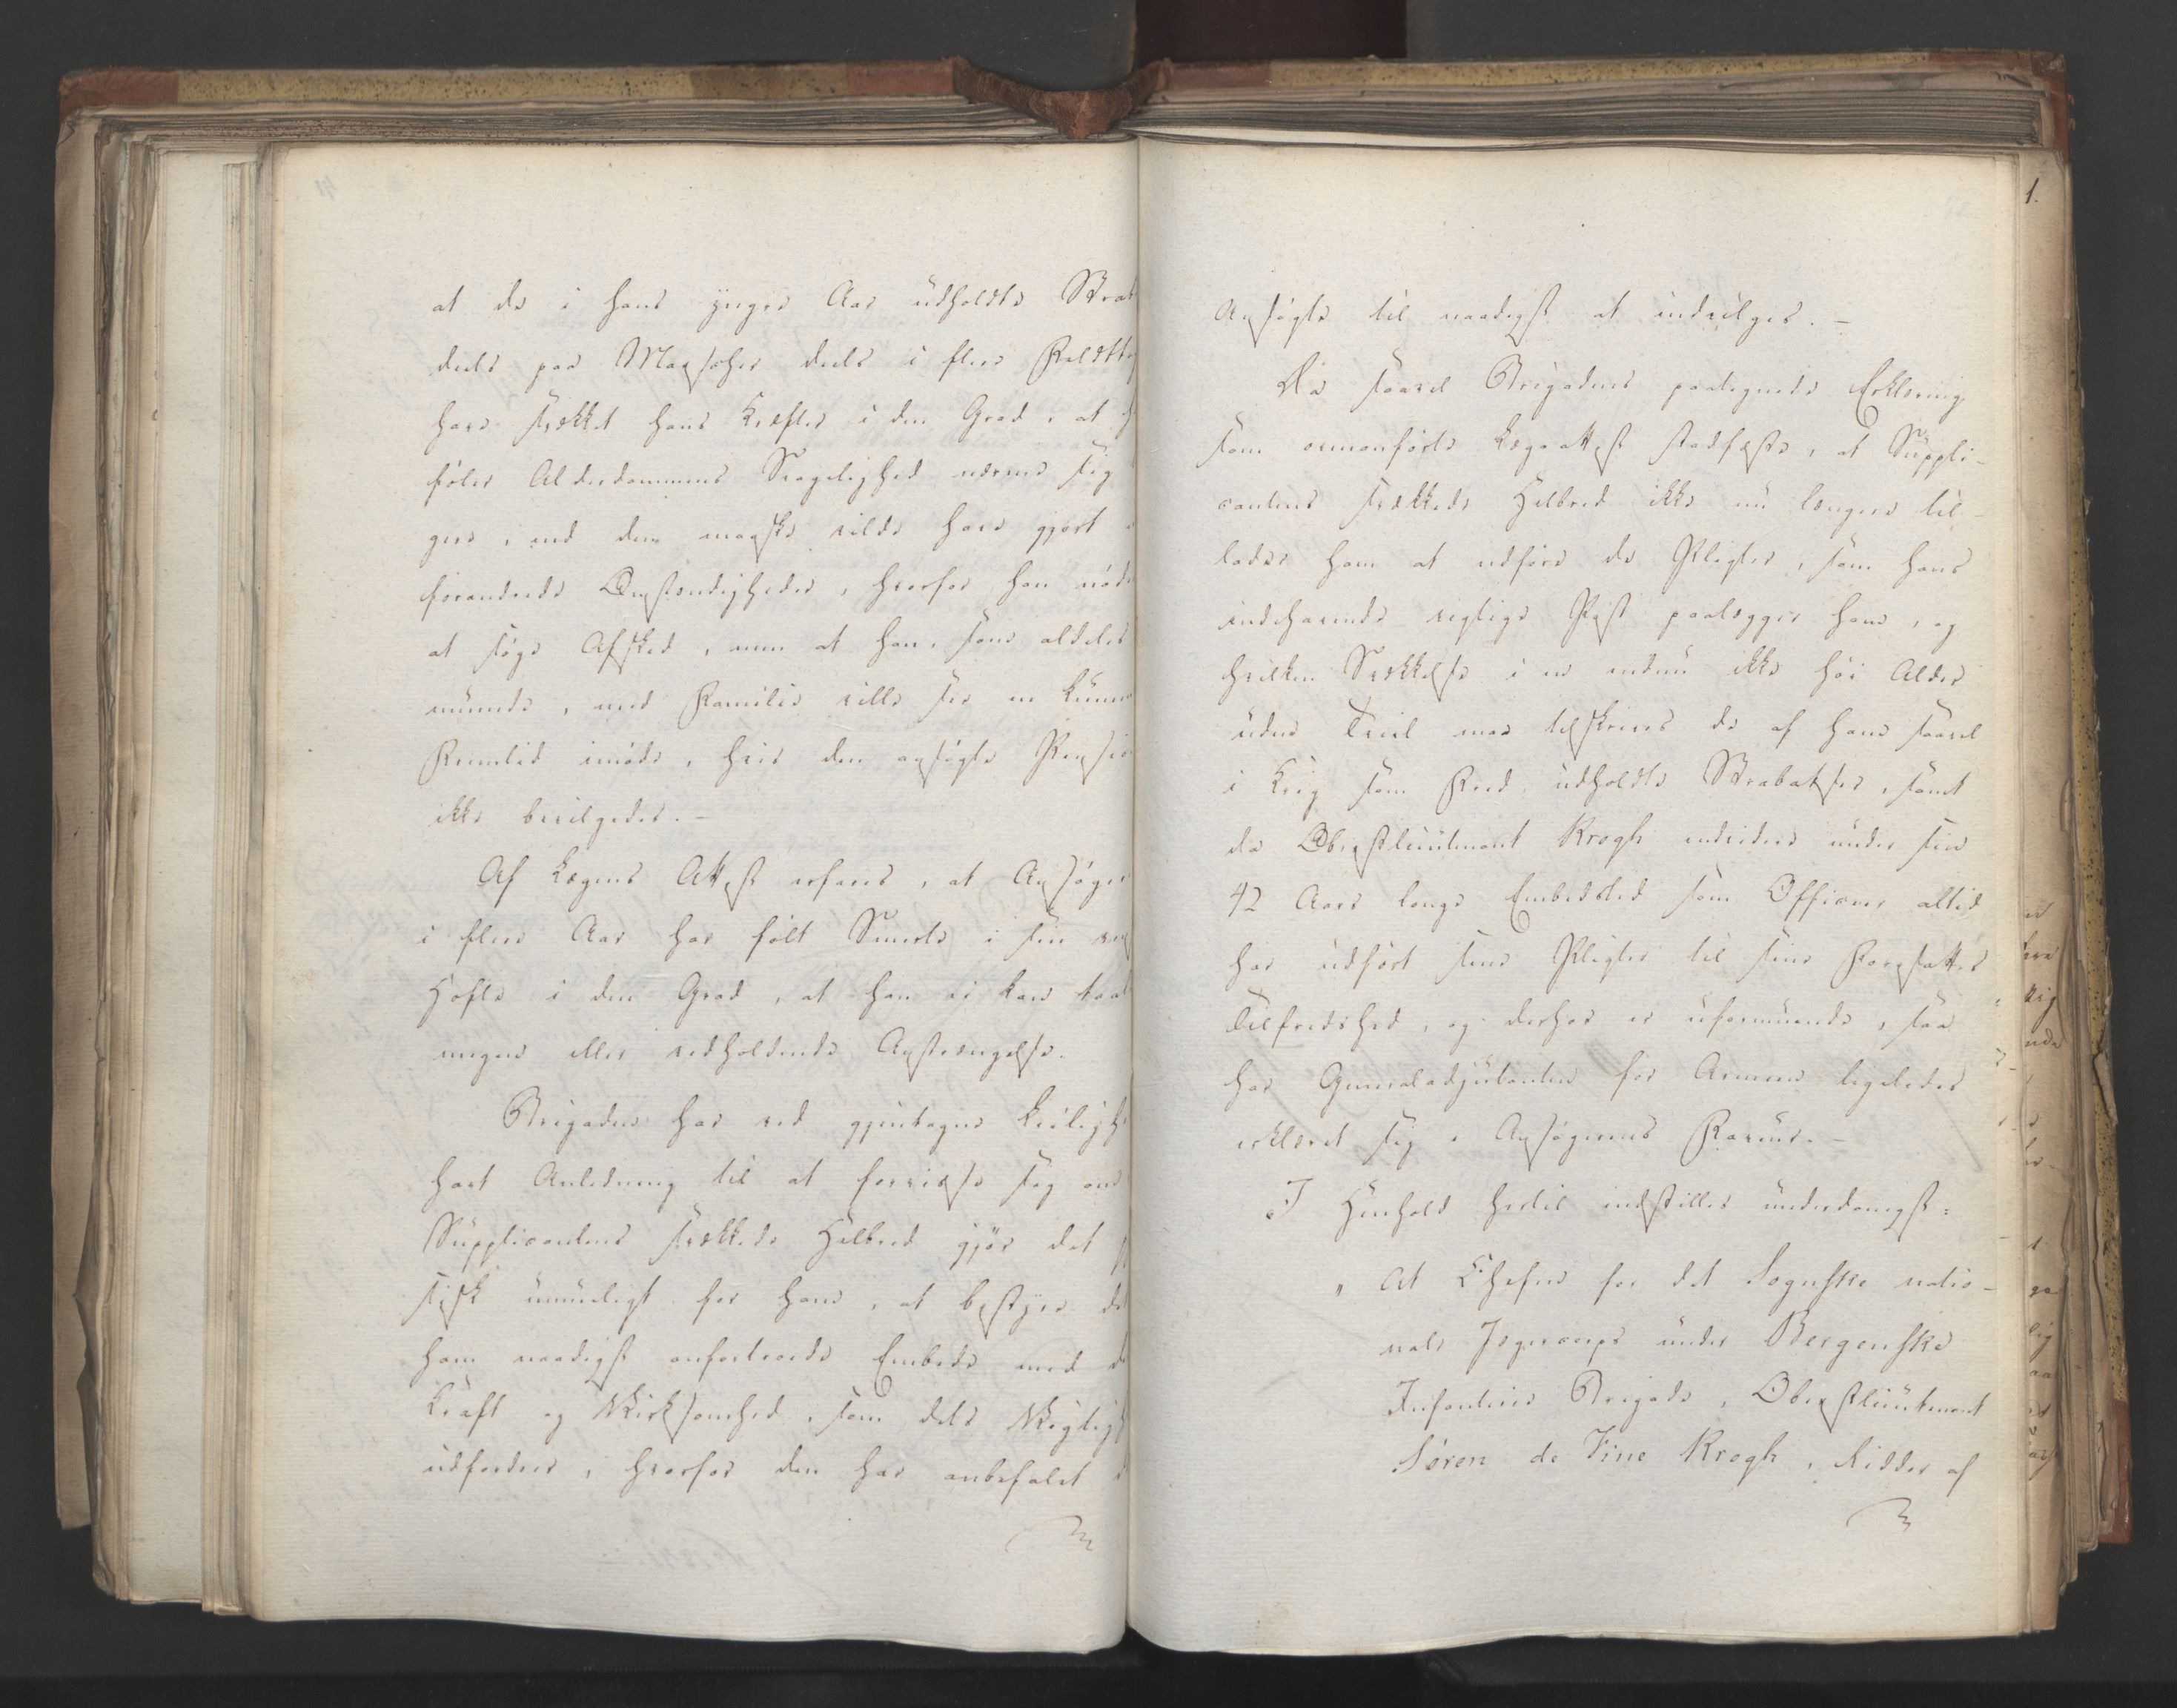 at de i hans yngre Aar udholdte Strab
deels paa Marscher deels i flere Feldttog
have svækket hans Kræfter i den Grad, at h
føler Alderdommens Svagelighed nærme sig
gere, end den maaske vilde have gjort
forandrede Omstændigheder, hvorfor han nød
at søge Afsked, men at han, som aldeles
muende, med Familie ville see en kummer
Fremtid imøde, hvis den ansøgte Pension
ikke bevilgedes. —
Af Lægens Attest erfares, at Ansøger
i flere Aar har følt Smerte i sin
Hofte i den Grad, at han ei kan taal
megen eller vedholdende Anstrængelse.
Brigaden har ved gjentagne Leiligh
havt Anledning til at forvisse sig om
Supplicantens svækkede Helbred gjør det
sisk umueligt for ham, at bestyre det
ham naadigst anfortroede Embede med d
Kraft og Virksomhed, som dets Vigtigh
udfordrer, hvorfor den har anbefalet
1.
Ansøgte til naadigst at indvilges. —
Da saavel Brigadens paategnede Erklæring
som ovenanførte Lægeattest stadfæste, at Suppli-
cantens svækkede Helbred ikke nu længere til-
lader ham at udføre de Pligter, som hans
indehavende vigtige Post paalægger ham, og
hvilken Svækkelse i en endnu ikke høi Alder
uden Tvivl maa tilskrives de af ham saavel
i Krig som Fred udholdte Strabatser, samt
da Oberstlieutenant Krogh endvidere under sin
42 Aars lange Embedstid som Officeer altid
har udført sine Pligter til sine Foresattes
Tilfredshed, og derhos er uformuende, saa
har Generaladjutanten for Armeen ligeledes
erklæret sig i Ansøgerens Faveur. —
I Henhold hertil indstilles underdanigst:
" At Chefen for det Sognske natio-
nale Jegercorps under Bergenske
Infanterie Brigade, Oberstlieutenant
Søren de Fine Krogh, Ridder af